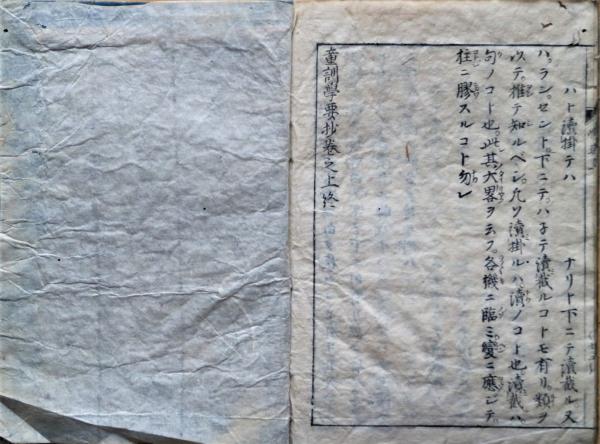 ハト讀掛テハ　ナリト下ニテ讀截ル又
ハランセント下ニテハ子テ讀截ルコトモ有リ類ヲ
以テ推テ知ルベシ凢ソ讀掛ルハ讀ノコト也讀截ハ
句ノコト也此其大畧ヲ云フ各機ニ臨ミ變ニ應ジテ
柱ニ膠スルコト勿レ
童訓學要抄巻之上終